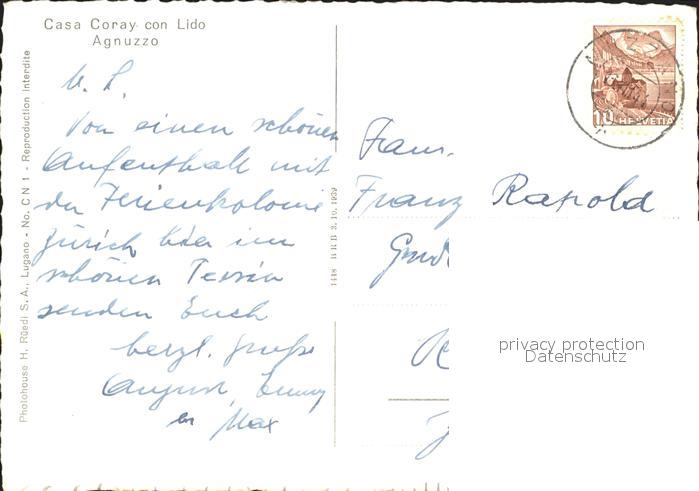 Casa Coray con Lido
Agnuzzo
M. L.
Von einen schönen
Aufenthalt mit
der Ferienkolonie
Zürich hier im
schönen Tessin
senden Euch
herzl. Grüsse
August, Emmy
Max
Fam.
Franz Rapold
Photohouse H. Rüedi S. A., Lugano - No. C N 1 - Reproduction interdite
1448 BRB 3.10.1939
10 HELVETIA
privacy protection
Datenschutz